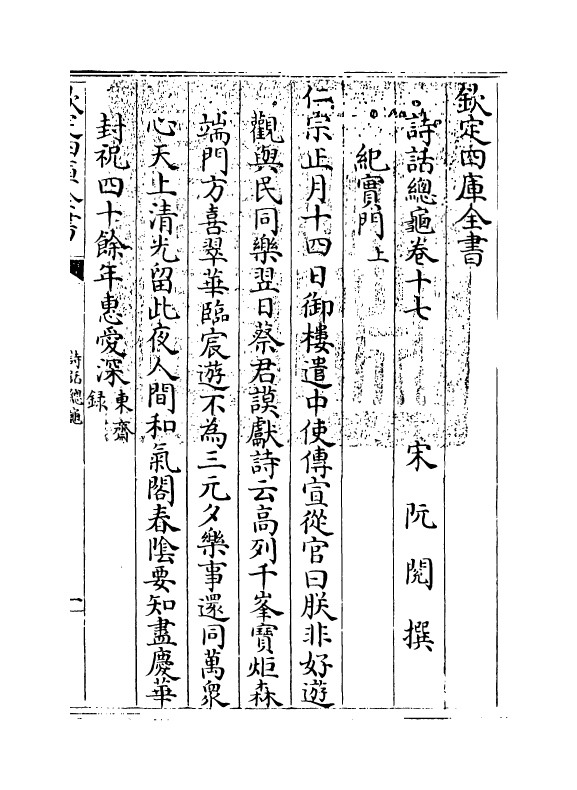 欽定四庫全書
詩話總龜卷十七　宋　阮閱　撰
紀實門上
仁宗正月十四日御樓遣中使傳宣從官曰朕非好遊
觀與民同樂翌日蔡君謨獻詩云高列千峯寶炬森
端門方喜翠華臨宸遊不為三元夕樂事還同萬衆
心天上清光留此夜人間和氣閣春陰要知盡慶華
封祝四十餘年惠愛深東齋録
欽定四庫全書
詩話總龜
一